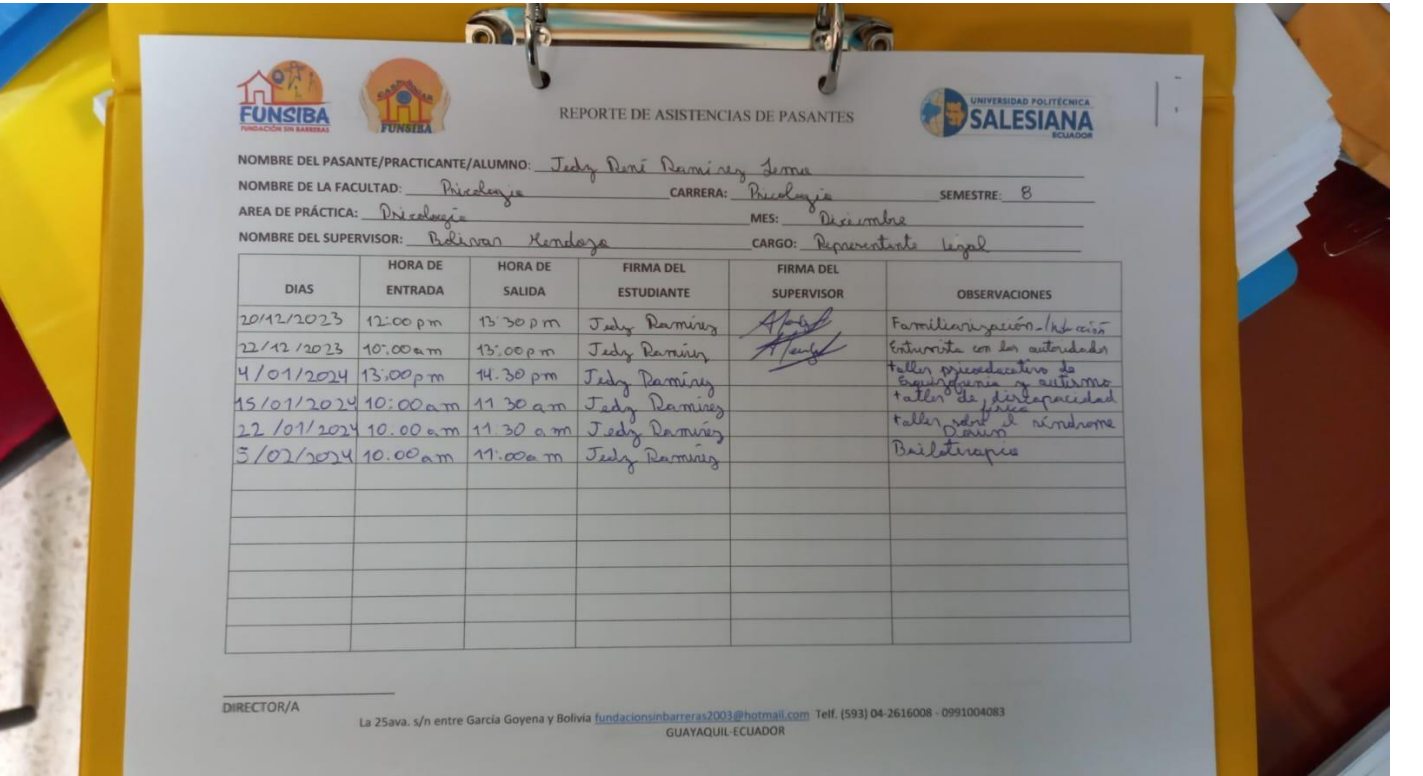 FUNSIBA
FUNDACIÓN SIN BARRERAS
FUNSIBA
REPORTE DE ASISTENCIAS DE PASANTES
UNIVERSIDAD POLITÉCNICA
SALESIANA
ECUADOR
NOMBRE DEL PASANTE/PRACTICANTE/ALUMNO: Jedy René Ramírez Lema
NOMBRE DE LA FACULTAD: Psicología CARRERA: Psicología SEMESTRE: 8
AREA DE PRÁCTICA: Psicología MES: Diciembre
NOMBRE DEL SUPERVISOR: Bolívar Mendoza CARGO: Representante legal
DIAS HORA DE ENTRADA HORA DE SALIDA FIRMA DEL ESTUDIANTE FIRMA DEL SUPERVISOR OBSERVACIONES
20/12/2023 12:00 pm 13:30 pm Jedy Ramírez Familiarización-
22/12/2023 10:00 am 13:00 pm Jedy Ramírez Entrevista con las autoridades
4/01/2024 13:00 pm 14.30 pm Jedy Ramírez taller psicoeducativo de Esquizofrenia y autismo
15/01/2024 10:00 am 11 30 am Jedy Ramírez taller de discapacidad física
22/01/2024 10.00 am 11 30 am Jedy Ramírez taller sobre el síndrome Down
5/02/2024 10.00 am 11:00 am Jedy Ramírez Bailoterapia
DIRECTOR/A
La 25ava. s/n entre García Goyena y Bolivia fundacionsinbarreras2003@hotmail.com Telf. (593) 04-2616008 - 0991004083
GUAYAQUIL-ECUADOR